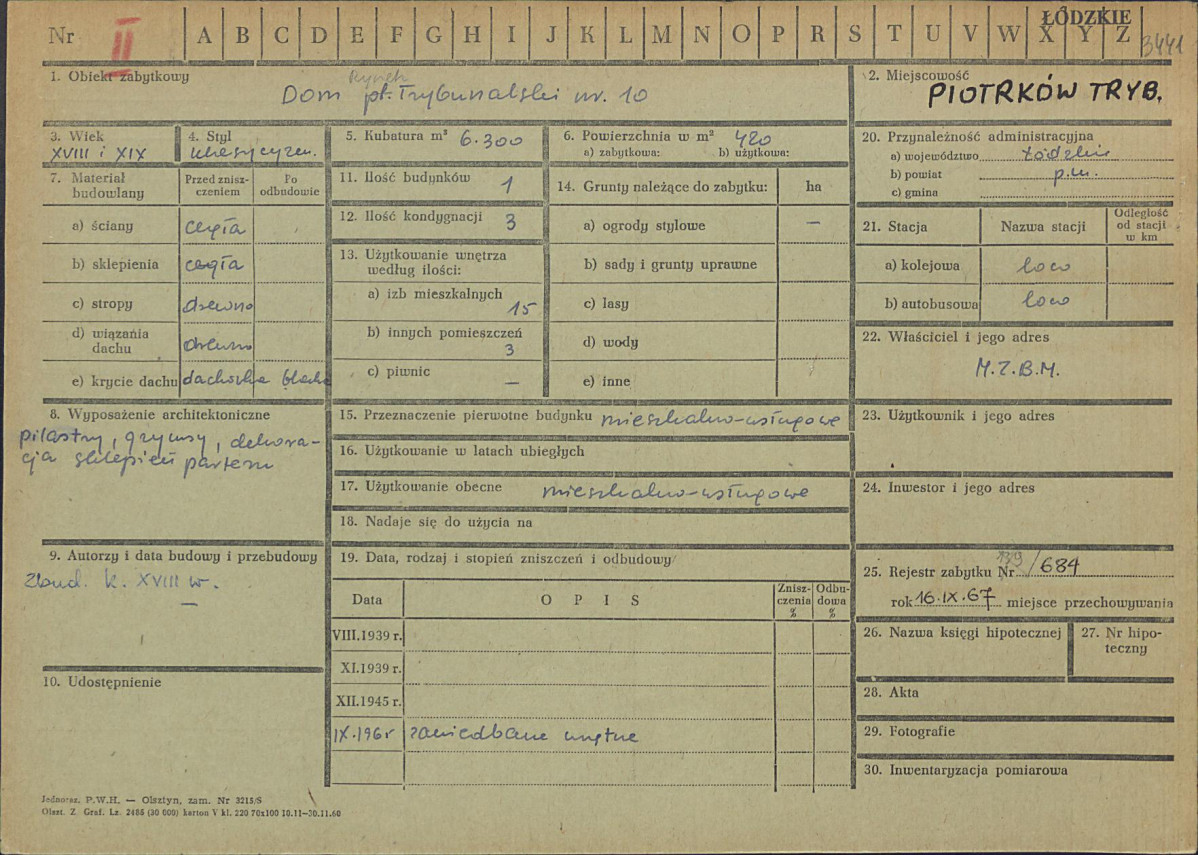 Nr II A B C D E F G H I J K L M N O P R S T U V W X Y Z
ŁÓDZKIE
3441
1. Obiekt zabytkowy
Rynek
Dom pl. Trybunalski nr. 10
2. Miejscowość
PIOTRKÓW TRYB.
3. Wiek
XVIII i XIX
4. Styl
klasycyzm.
5. Kubatura m³ 6.300
6. Powierzchnia w m² 420
a) zabytkowa: b) użytkowa:
7. Materiał budowlany
Przed zniszczeniem
Po odbudowie
a) ściany cegła
b) sklepienia cegła
c) stropy drewno
d) wiązania dachu drewno
e) krycie dachu dachówka blacha
8. Wyposażenie architektoniczne
pilastry, gzymsy, dekora-
cja sklepień parteru
9. Autorzy i data budowy i przebudowy
Zbud. k. XVIII w.
—
10. Udostępnienie
11. Ilość budynków 1
12. Ilość kondygnacji 3
13. Użytkowanie wnętrza
według ilości:
a) izb mieszkalnych 15
b) innych pomieszczeń 3
c) piwnic —
14. Grunty należące do zabytku: ha
a) ogrody stylowe —
b) sady i grunty uprawne
c) lasy
d) wody
e) inne
15. Przeznaczenie pierwotne budynku mieszkalno-usługowe
16. Użytkowanie w latach ubiegłych
17. Użytkowanie obecne mieszkalno-usługowe
18. Nadaje się do użycia na
19. Data, rodzaj i stopień zniszczeń i odbudowy
Data
O P I S
Zniszczenia %
Odbudowa %
VIII.1939 r.
XI.1939 r.
XII.1945 r.
IX.196r zaniedbane wnętrze
20. Przynależność administracyjna
a) województwo łódzkie
b) powiat p.m.
c) gmina
21. Stacja
Nazwa stacji
Odległość
od stacji
w km
a) kolejowa loco
b) autobusowa loco
22. Właściciel i jego adres
M.Z.B.M.
23. Użytkownik i jego adres
24. Inwestor i jego adres
25. Rejestr zabytku Nr 139/684
rok 16.IX.67 miejsce przechowywania
26. Nazwa księgi hipotecznej
27. Nr hipo-
teczny
28. Akta
29. Fotografie
30. Inwentaryzacja pomiarowa
Jednoraz. P.W.H. — Olsztyn, zam. Nr 3215/S
Olszt. Z. Graf. Lz. 2485 (30 000) karton V kl. 220 70x100 10.11—30.11.60